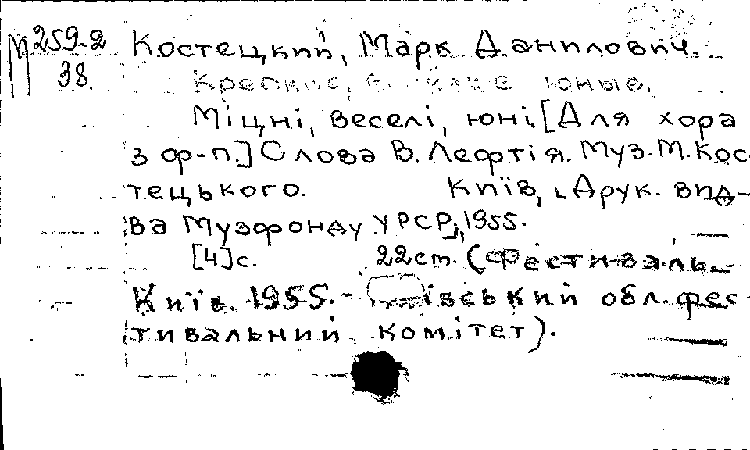 М 259-2
38.
Костецкий, Марк Данилович.
Крепкие, юные.
Міцні, веселі, юні.[Для хора
з ф-п.] Слова В. Лефтія. Муз. М. Кос-
тецького. Київ, Друк. вид-
ва Музфонду УРСР, 1955.
[4]с. 22 см. (Фестиваль
Київ. 1955. - ївський обл. фес-
тивальний комітет).